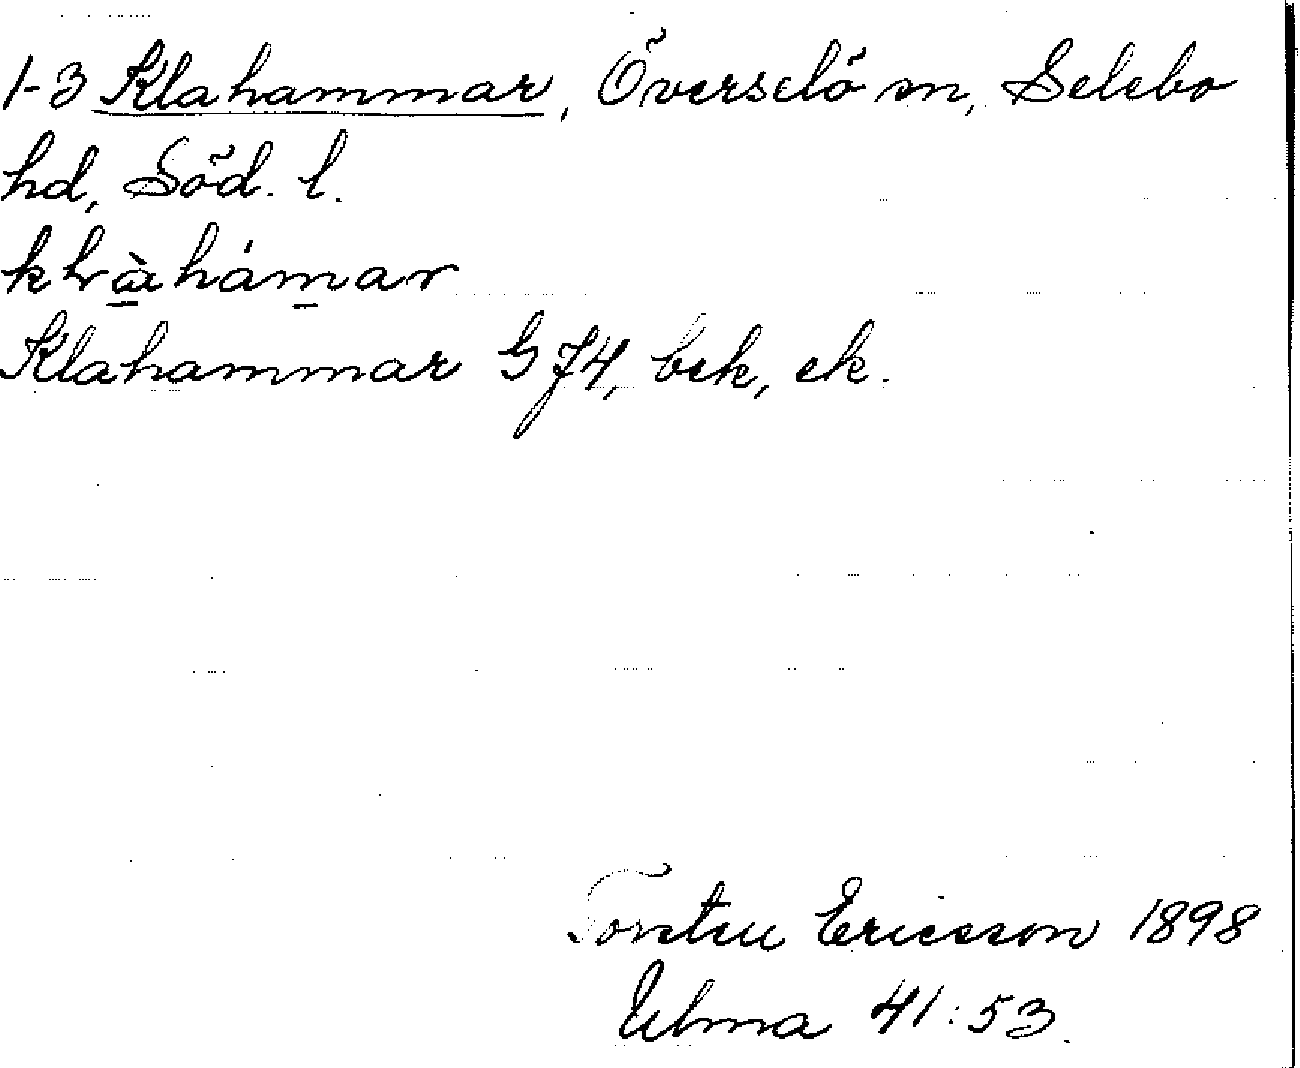 1-3 Klahammar, Överselö sn, Selebo
hd, Söd. l.
Klahammar G J4, bck, ek.
Torsten Ericsson 1898
Ulma 41:53.